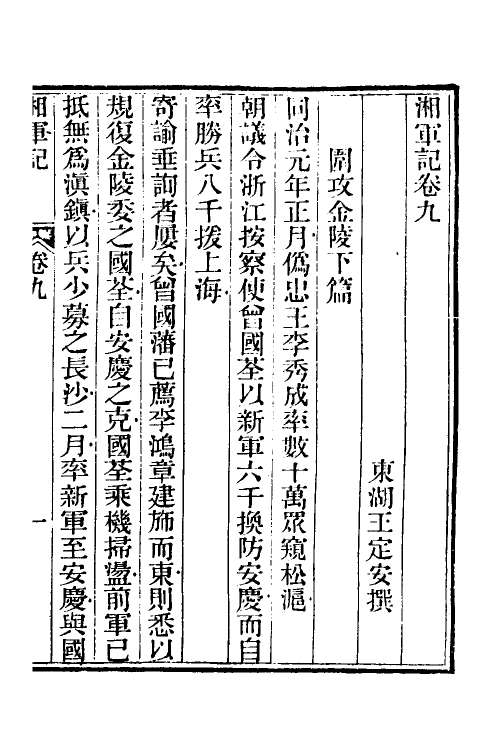 湘軍記卷九
東湖王定安撰
圍攻金陵下篇
同治元年正月僞忠王李秀成率數十萬眾窺松滬
朝議令浙江按察使曾國荃以新軍六千換防安慶而自
率勝兵八千援上海
寄諭垂詢者屢矣曾國藩已薦李鴻章建旆而東則悉以
規復金陵委之國荃自安慶之克國荃乘機掃盪前軍已
抵無爲滇鎭以兵少募之長沙二月率新軍至安慶與國
湘軍記
卷九
一